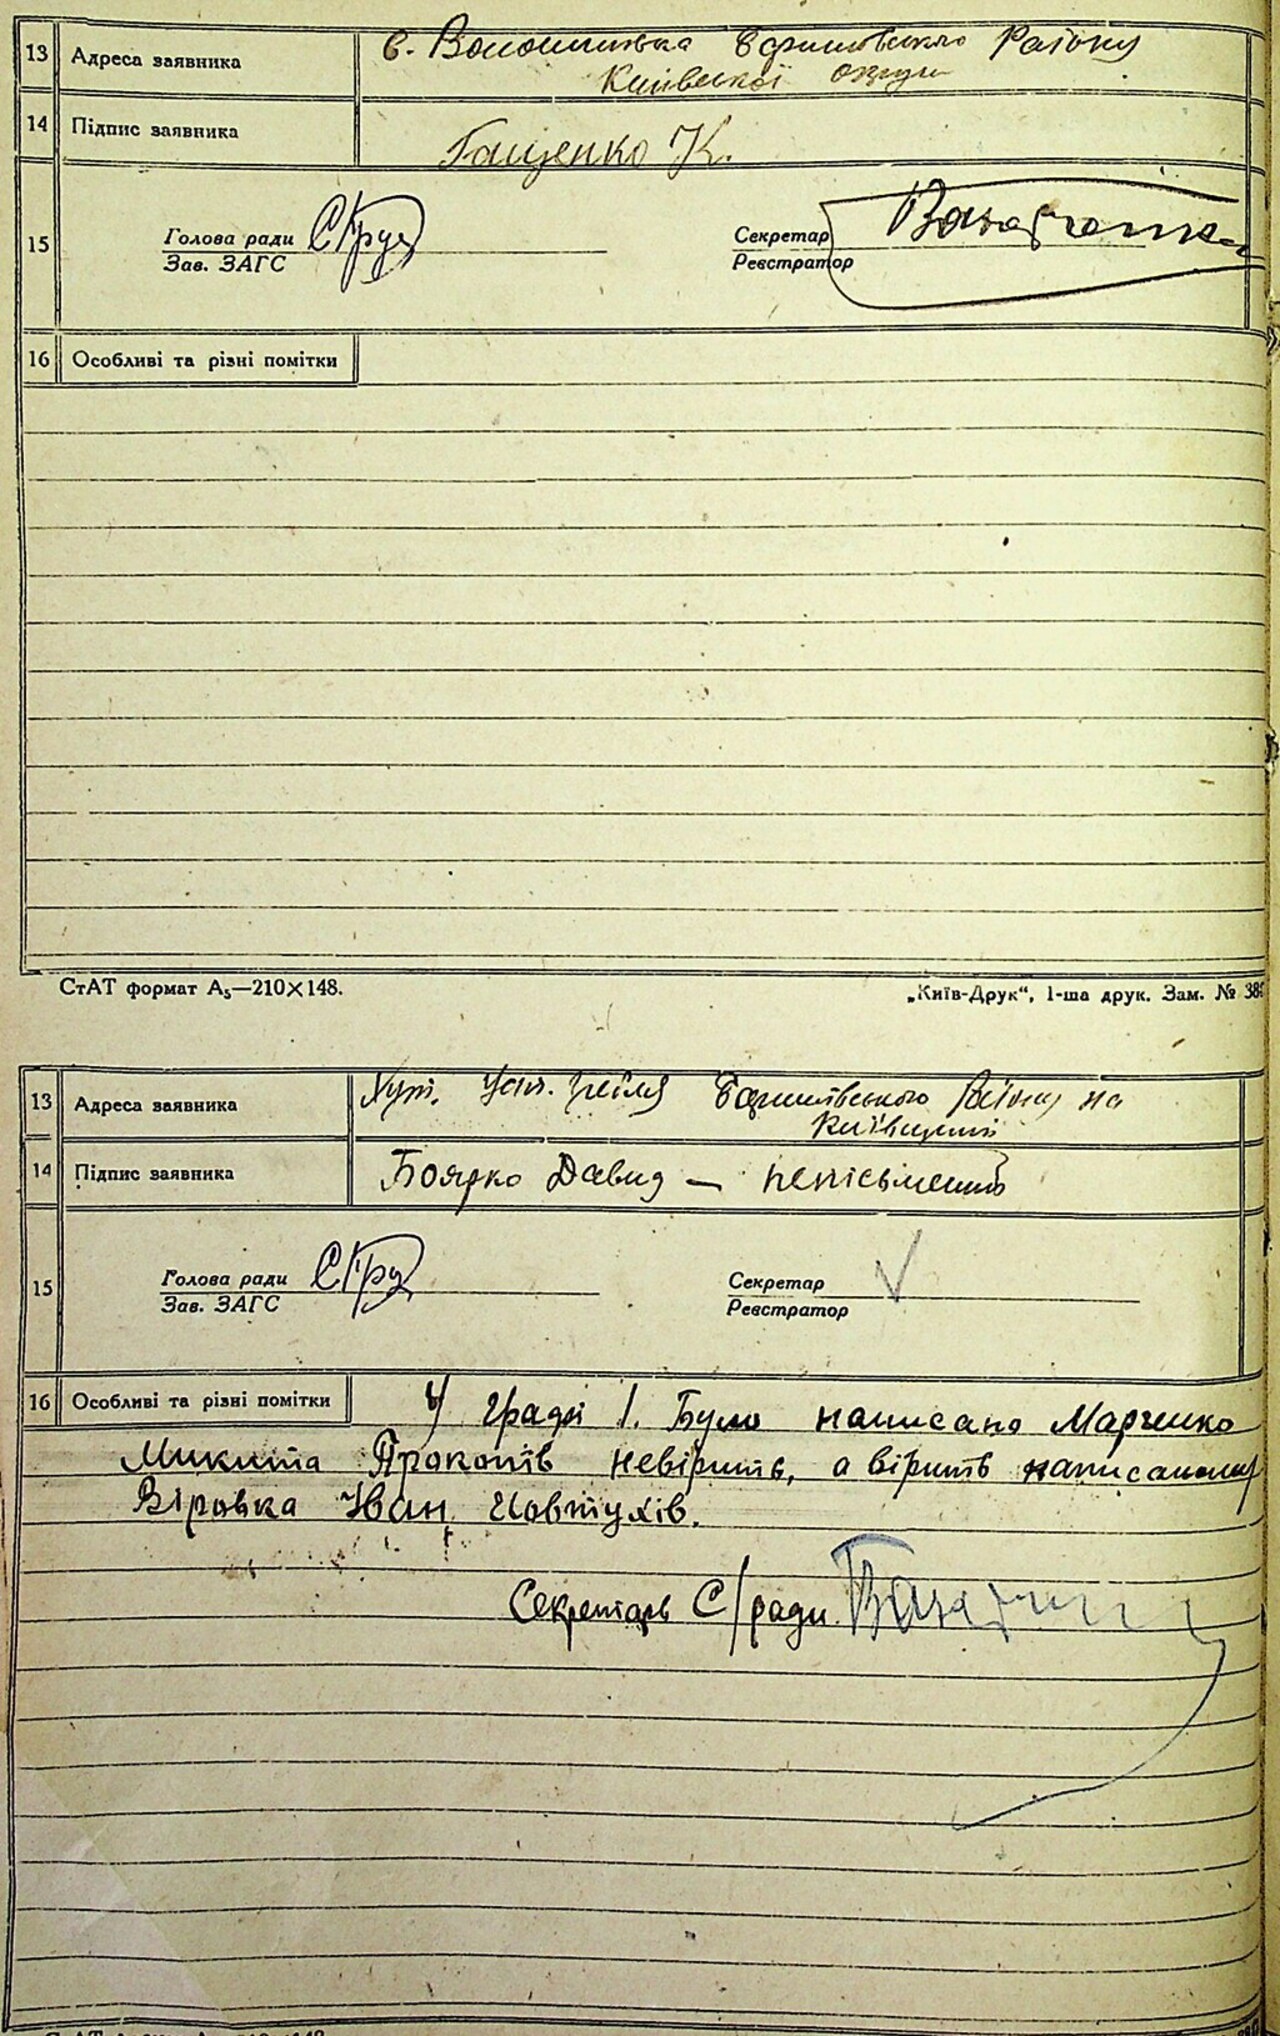 13 Адреса заявника с. Волошинівка Баришівського Району
Київської округи
14 Підпис заявника Гащенко К.
15 Голова ради Секретар
Зав. ЗАГС Реєстратор
16 Особливі та різні помітки
СтАТ формат А₅—210×148. „Київ-Друк“, 1-ша друк. Зам. №
13 Адреса заявника Хут. Баришівського Району на
Київщині
14 Підпис заявника Боярко Давид — неписьменний
15 Голова ради Секретар
Зав. ЗАГС Реєстратор
16 Особливі та різні помітки У графі 1. Було написано Марченко
Микита Прокопів невірить, а вірить написаному
Віровка Іван Йовтухів.
Секретарь С/ради